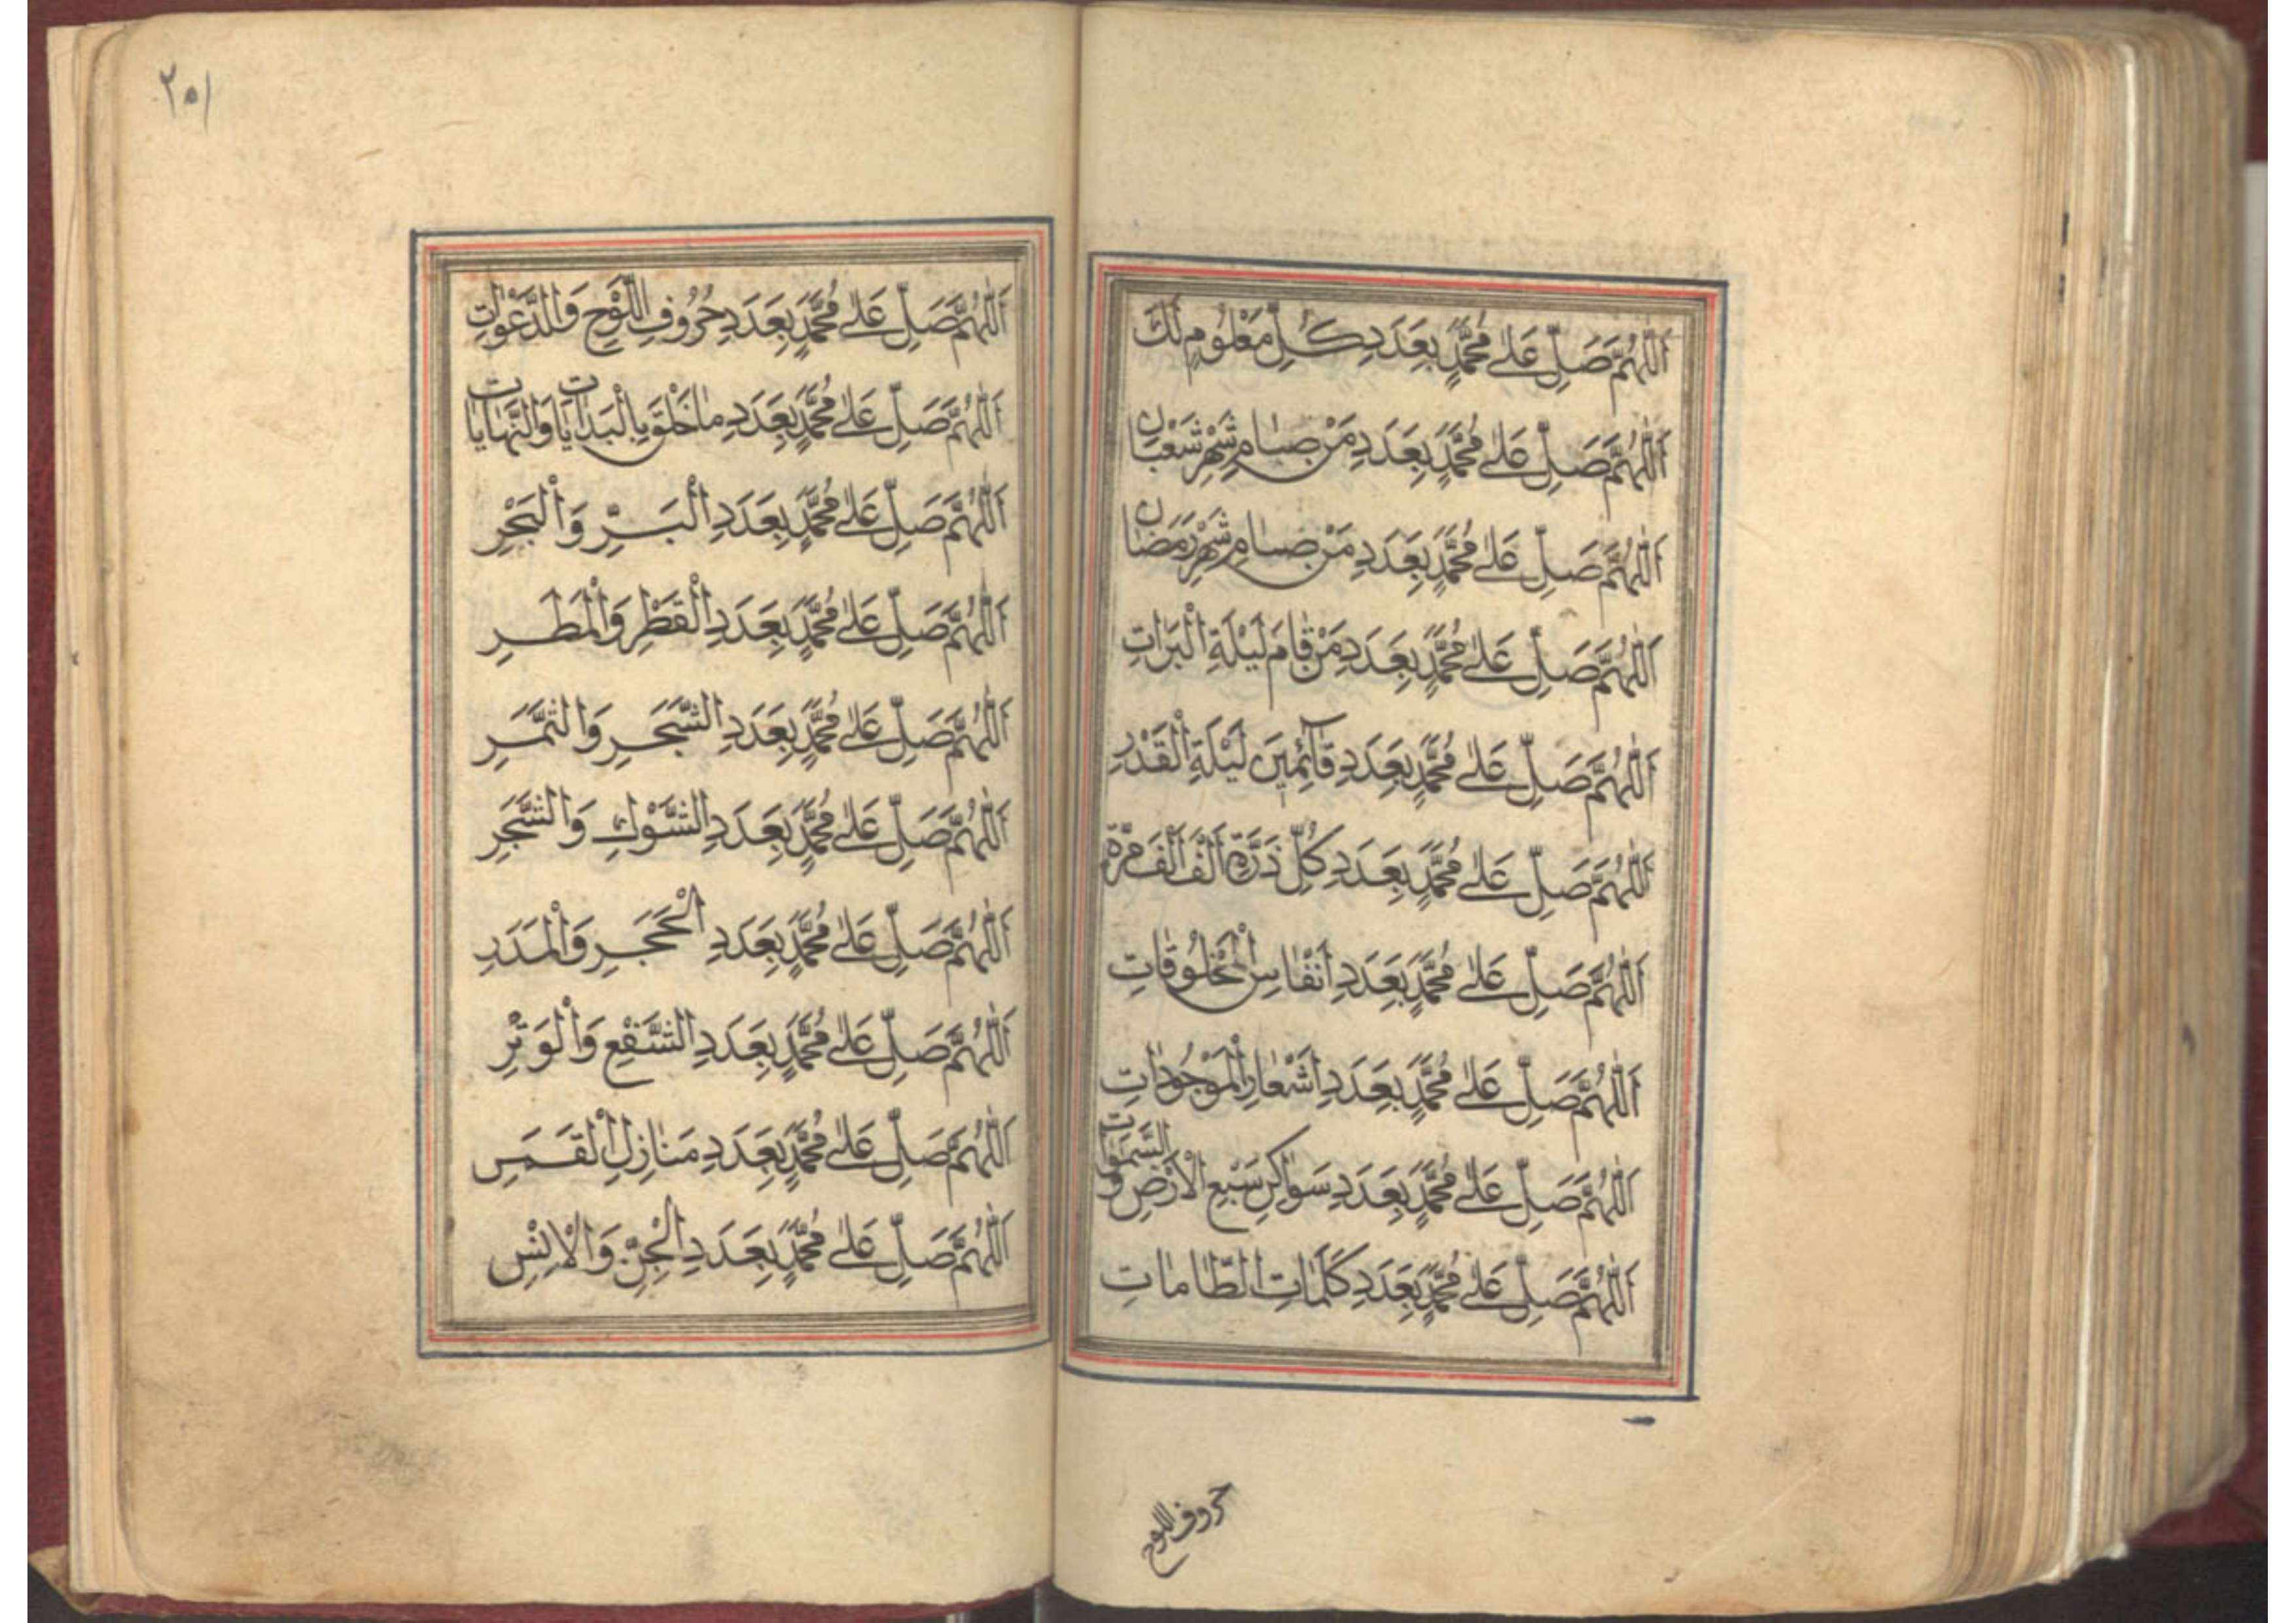 اَللّٰهُمَّ صَلِّ عَلٰى مُحَمَّدٍ بِعَدَدِ كُلِّ مَعْلُومٍ لَكَ
اَللّٰهُمَّ صَلِّ عَلٰى مُحَمَّدٍ بِعَدَدِ مَنْ صَامَ شَهْرَ شَعْبَانَ
اَللّٰهُمَّ صَلِّ عَلٰى مُحَمَّدٍ بِعَدَدِ مَنْ صَامَ شَهْرَ رَمَضَانَ
اَللّٰهُمَّ صَلِّ عَلٰى مُحَمَّدٍ بِعَدَدِ مَنْ قَامَ لَيْلَةِ الْبَرَاتِ
اَللّٰهُمَّ صَلِّ عَلٰى مُحَمَّدٍ بِعَدَدِ قَآئِمِينَ لَيْلَةِ الْقَدْرِ
اَللّٰهُمَّ صَلِّ عَلٰى مُحَمَّدٍ بِعَدَدِ كُلِّ ذَرَّةٍ اَلْفَ اَلْفَ مَرَّةٍ
اَللّٰهُمَّ صَلِّ عَلٰى مُحَمَّدٍ بِعَدَدِ اَنْفَاسِ الْمَخْلُوقَاتِ
اَللّٰهُمَّ صَلِّ عَلٰى مُحَمَّدٍ بِعَدَدِ اَشْعَارِ الْمَوْجُودَاتِ
اَللّٰهُمَّ صَلِّ عَلٰى مُحَمَّدٍ بِعَدَدِ سَوَاكِنِ سَبْعِ الْاَرْضِ وَالسَّمٰوَاتِ
اَللّٰهُمَّ صَلِّ عَلٰى مُحَمَّدٍ بِعَدَدِ كَلِمَاتِ الطَّامَاتِ
حروف اللوح
٢٥١
اَللّٰهُمَّ صَلِّ عَلٰى مُحَمَّدٍ بِعَدَدِ حُرُوفِ اللَّوْحِ وَالدَّعَوَاتِ
اَللّٰهُمَّ صَلِّ عَلٰى مُحَمَّدٍ بِعَدَدِ مَا خَلَقَ بِالْبَدَايَاتِ وَالنَّهَايَاتِ
اَللّٰهُمَّ صَلِّ عَلٰى مُحَمَّدٍ بِعَدَدِ الْبَرِّ وَالْبَحْرِ
اَللّٰهُمَّ صَلِّ عَلٰى مُحَمَّدٍ بِعَدَدِ الْقَطْرِ وَالْمَطَرِ
اَللّٰهُمَّ صَلِّ عَلٰى مُحَمَّدٍ بِعَدَدِ الشَّجَرِ وَالثَّمَرِ
اَللّٰهُمَّ صَلِّ عَلٰى مُحَمَّدٍ بِعَدَدِ الشَّوْكِ وَالشَّجَرِ
اَللّٰهُمَّ صَلِّ عَلٰى مُحَمَّدٍ بِعَدَدِ الْحَجَرِ وَالْمَدَرِ
اَللّٰهُمَّ صَلِّ عَلٰى مُحَمَّدٍ بِعَدَدِ الشَّفْعِ وَالْوَتْرِ
اَللّٰهُمَّ صَلِّ عَلٰى مُحَمَّدٍ بِعَدَدِ مَنَازِلِ الْقَمَرِ
اَللّٰهُمَّ صَلِّ عَلٰى مُحَمَّدٍ بِعَدَدِ الْجِنِّ وَالْاِنْسِ